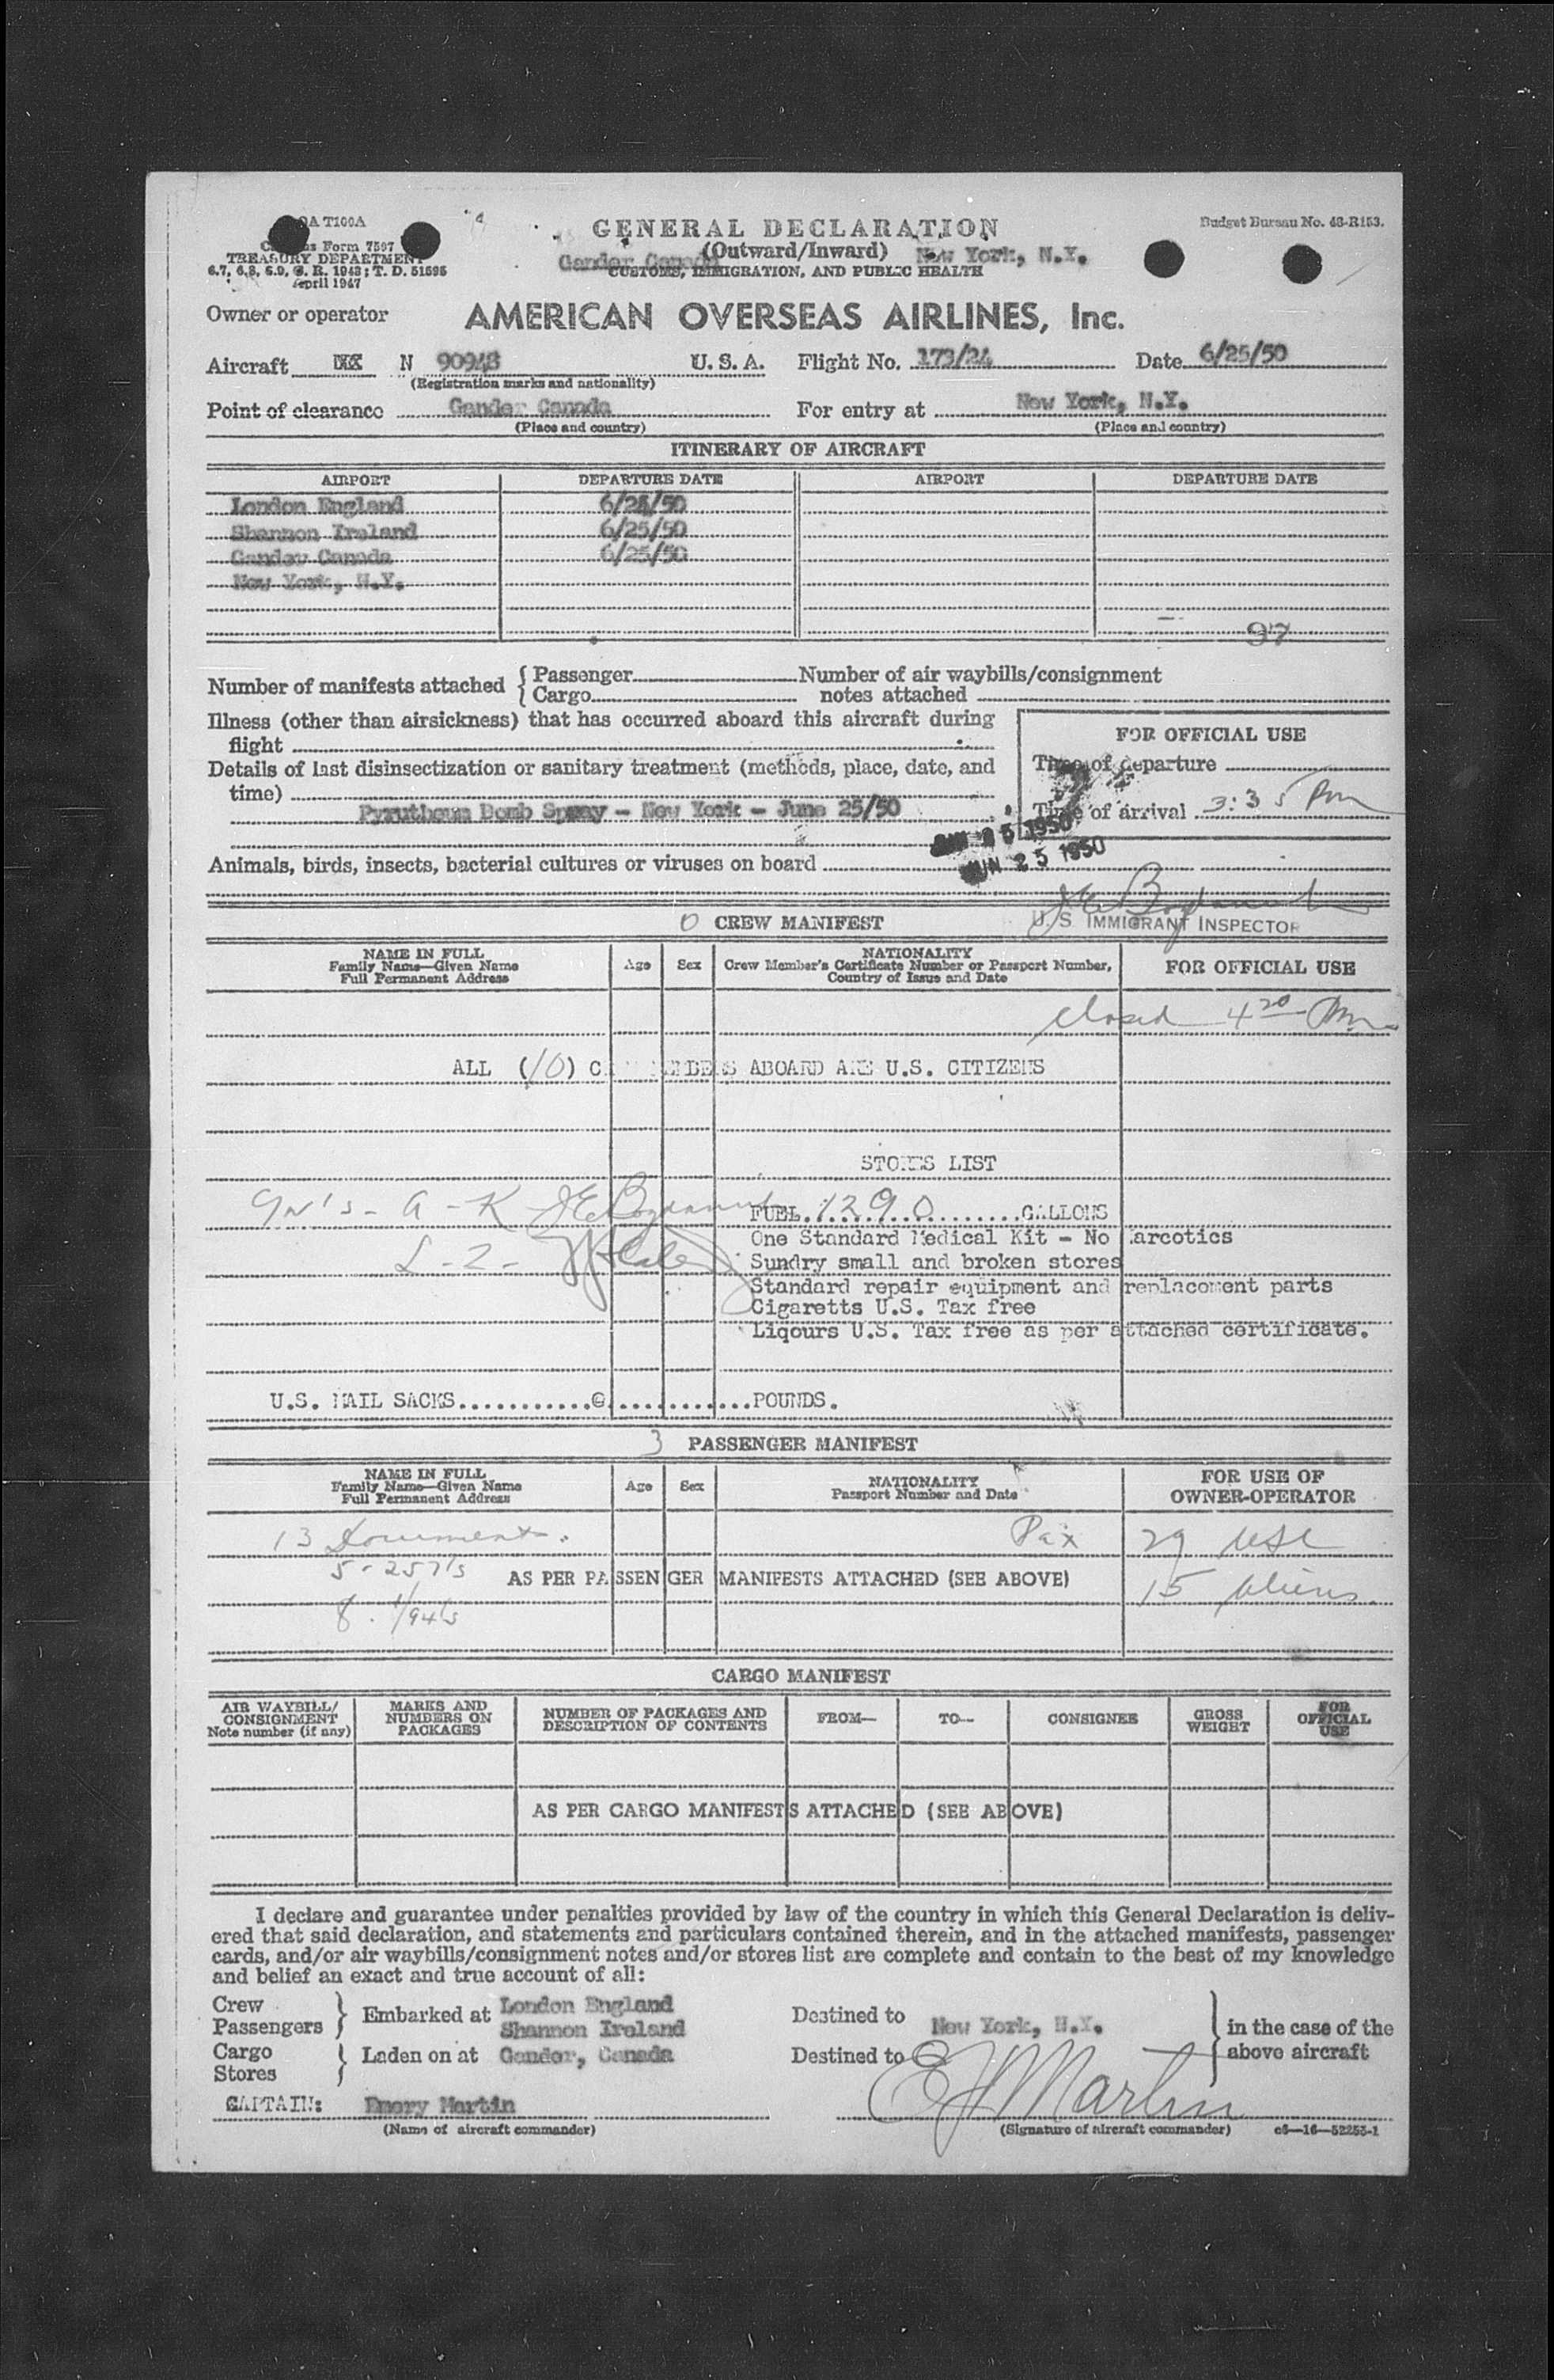 OA T100A
Customs Form 7507
TREASURY DEPARTMENT
6.7, 6.8, 6.9, C. R. 1943; T. D. 51595
April 1947
GENERAL DECLARATION
(Outward/Inward)
Budget Bureau No. 48-R153.
Gander Canada New York, N.Y.
CUSTOMS, IMMIGRATION, AND PUBLIC HEALTH
Owner or operator AMERICAN OVERSEAS AIRLINES, Inc.
Aircraft N 90948 U. S. A. Flight No. 173/24 Date 6/25/50
(Registration marks and nationality)
Point of clearance Gander Canada For entry at New York, N.Y.
(Place and country) (Place and country)
ITINERARY OF AIRCRAFT
AIRPORT DEPARTURE DATE AIRPORT DEPARTURE DATE
London England 6/24/50
Shannon Ireland 6/25/50
Gander Canada 6/25/50
New York, N.Y.
97
Number of manifests attached { Passenger Number of air waybills/consignment
{ Cargo notes attached
Illness (other than airsickness) that has occurred aboard this aircraft during
flight
FOR OFFICIAL USE
Details of last disinsectization or sanitary treatment (methods, place, date, and
time)
Time of departure
Pyruthoum Bomb Spray - New York - June 25/50
Time of arrival 3:35 Pm
JUN 25 1950
JUN 25 1950
Animals, birds, insects, bacterial cultures or viruses on board
0 CREW MANIFEST
U. S. IMMIGRANT INSPECTOR
NAME IN FULL
Family Name—Given Name
Full Permanent Address
Age Sex
NATIONALITY
Crew Member's Certificate Number or Passport Number,
Country of Issue and Date
FOR OFFICIAL USE
closed 4 20 Pm
ALL (10) C MEMBERS ABOARD ARE U.S. CITIZENS
STORES LIST
FUEL 1290 GALLONS
One Standard Medical Kit - No Narcotics
Sundry small and broken stores
Standard repair equipment and replacement parts
Cigaretts U.S. Tax free
Liqours U.S. Tax free as per attached certificate.
U.S. MAIL SACKS............@............POUNDS.
3 PASSENGER MANIFEST
NAME IN FULL
Family Name—Given Name
Full Permanent Address
Age Sex
NATIONALITY
Passport Number and Date
FOR USE OF
OWNER-OPERATOR
13 Documents. Pax 29 USC
5-257's
AS PER PASSENGER MANIFESTS ATTACHED (SEE ABOVE) 15 Aliens
8.
CARGO MANIFEST
AIR WAYBILL/
CONSIGNMENT
Note number (if any)
MARKS AND
NUMBERS ON
PACKAGES
NUMBER OF PACKAGES AND
DESCRIPTION OF CONTENTS
FROM— TO— CONSIGNEE
GROSS
WEIGHT
FOR
OFFICIAL
USE
AS PER CARGO MANIFESTS ATTACHED (SEE ABOVE)
I declare and guarantee under penalties provided by law of the country in which this General Declaration is deliv-
ered that said declaration, and statements and particulars contained therein, and in the attached manifests, passenger
cards, and/or air waybills/consignment notes and/or stores list are complete and contain to the best of my knowledge
and belief an exact and true account of all:
Crew
Passengers } Embarked at London England
Shannon Ireland
Destined to New York, N.Y.
in the case of the
above aircraft
Cargo
Stores } Laden on at Gander, Canada
Destined to
CAPTAIN: Emory Martin
EJ Martin
(Name of aircraft commander) (Signature of aircraft commander) c6—16—52253-1